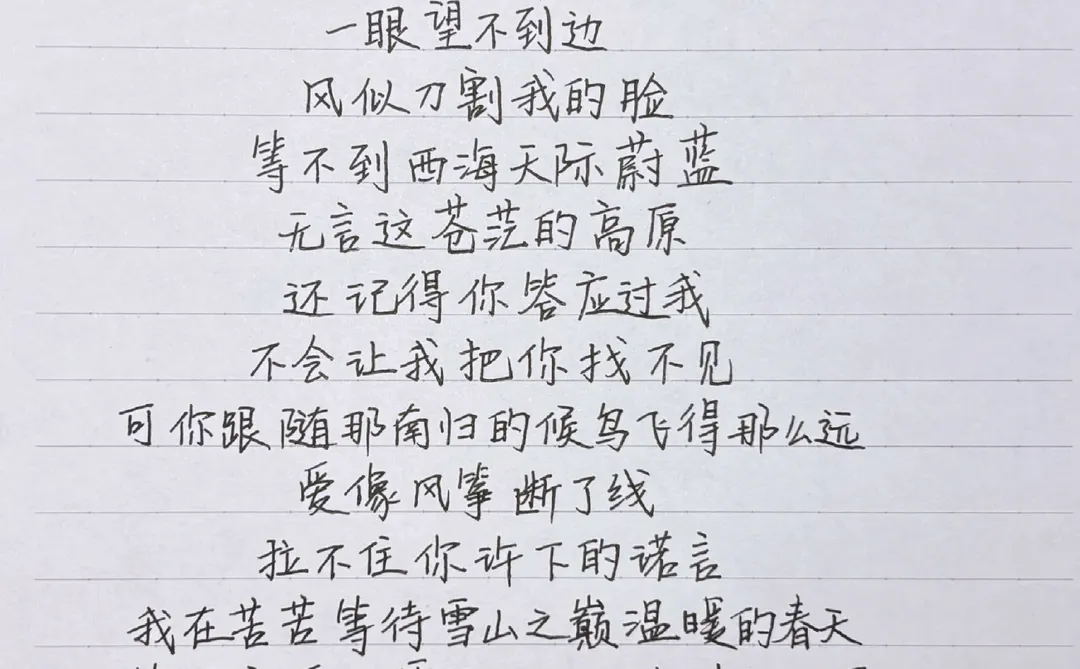 一眼望不到边
风似刀割我的脸
等不到西海天际蔚蓝
无言这苍茫的高原
还记得你答应过我
不会让我把你找不见
可你跟随那南归的候鸟飞得那么远
爱像风筝断了线
拉不住你许下的诺言
我在苦苦等待雪山之巅温暖的春天